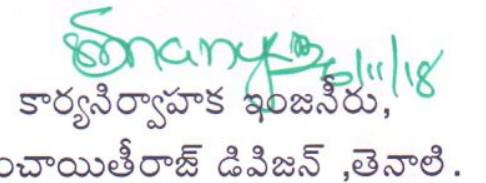 /11/18
కార్యనిర్వాహక ఇంజనీరు,
ంచాయితీరాజ్ డివిజన్ ,తెనాలి.